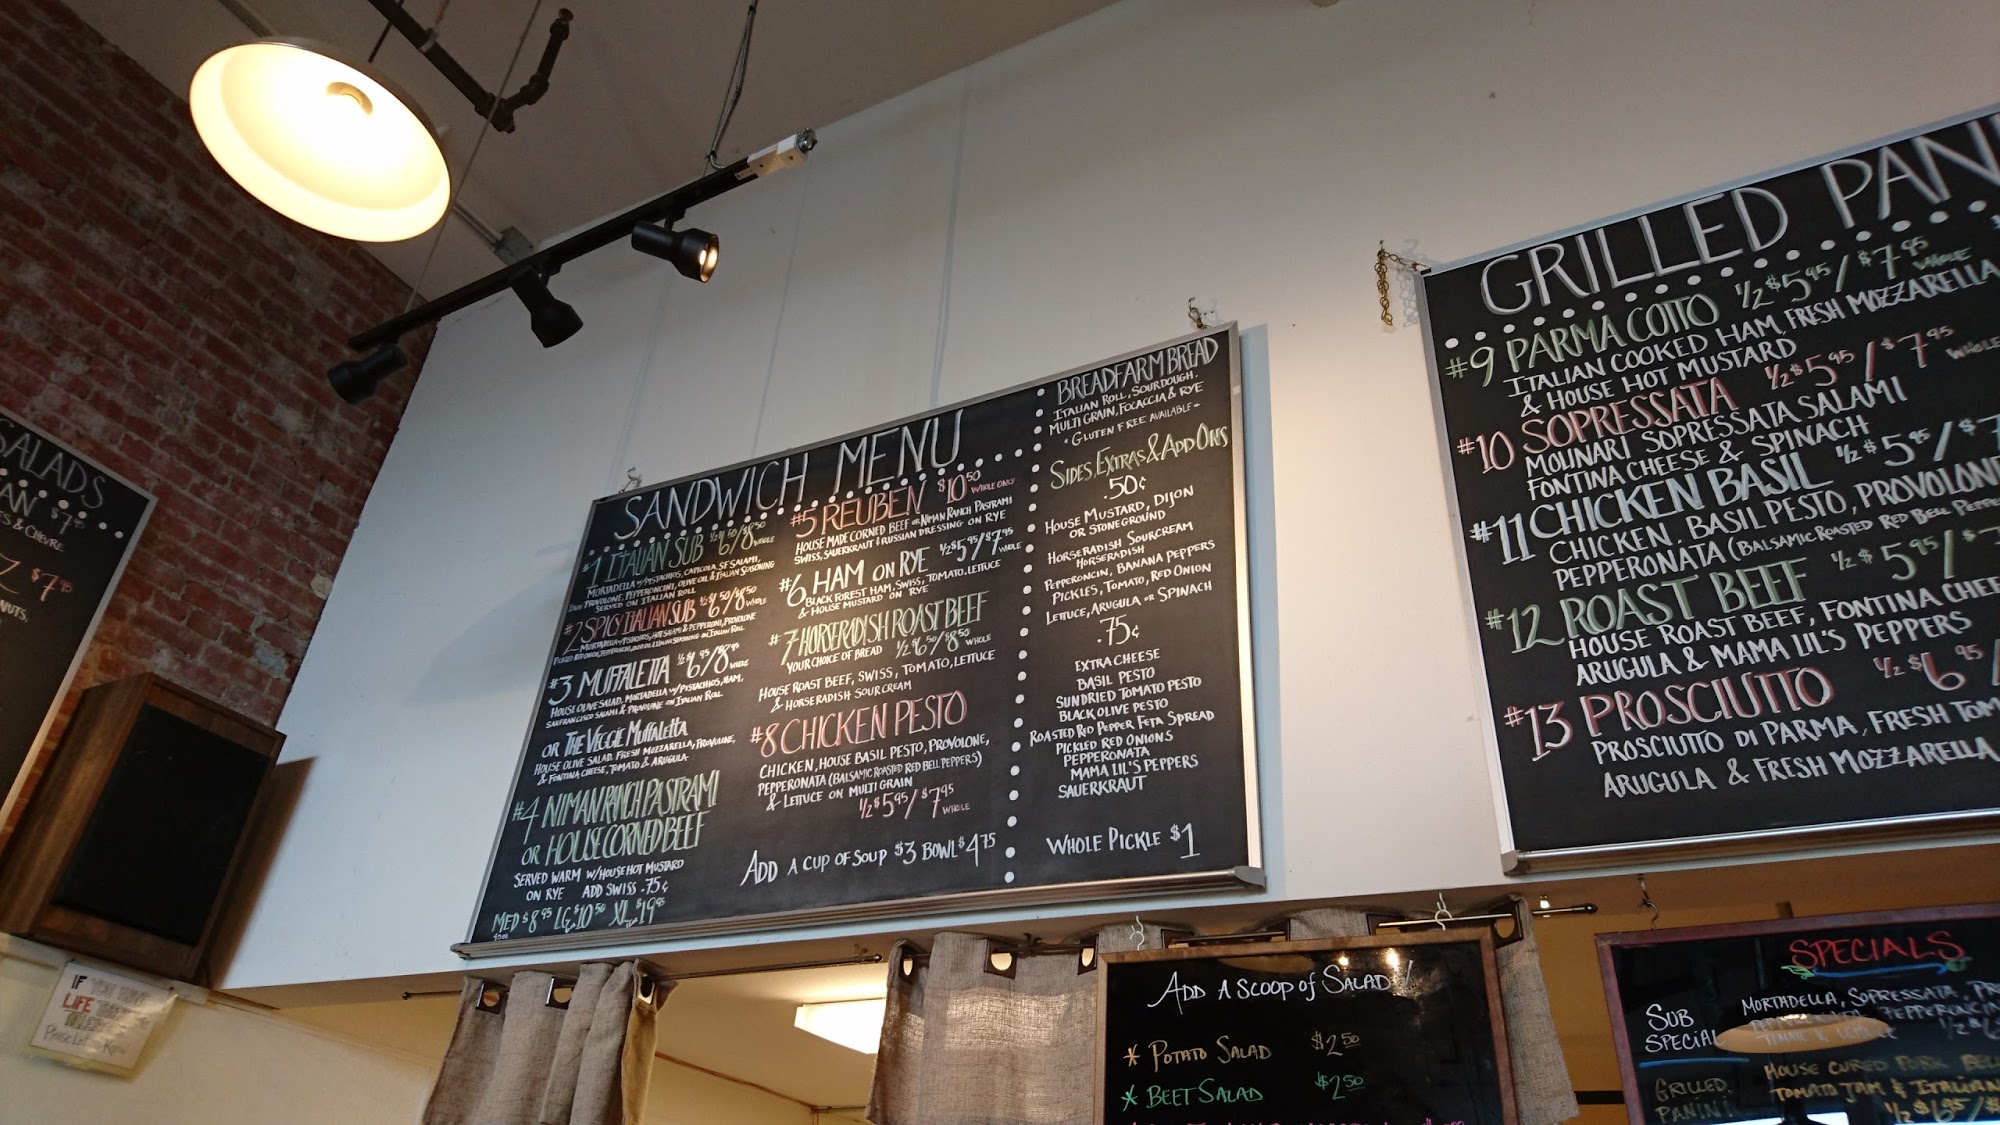 SALADS
$7.95
& CHEVRE
$7.95
NUTS,
SANDWICH MENU
#1 ITALIAN SUB 1/2 $6.50/8.50 WHOLE
MORTADELLA W/PISTACHIOS, CAPICOLA, SF SALAMI,
PROVOLONE, PEPPERONCINI, OLIVE OIL & ITALIAN SEASONING
SERVED ON ITALIAN ROLL
#2 SPICY ITALIAN SUB 1/2 $6.50/8.50 WHOLE
MORTADELLA W/PISTACHIOS, HOT SALAMI & PEPPERONI, PROVOLONE
ITALIAN ROLL
#3 MUFFALETTA 1/2 $6.95/8.95 WHOLE
HOUSE OLIVE SALAD, MORTADELLA W/PISTACHIOS, HAM,
SAN FRANCISCO SALAMI & PROVOLONE ON ITALIAN ROLL
OR THE VEGGIE MUFFALETTA
HOUSE OLIVE SALAD, FRESH MOZZARELLA, PROVOLONE,
& FONTINA CHEESE, TOMATO & ARUGULA
#4 NIMAN RANCH PASTRAMI
OR HOUSE CORNED BEEF
SERVED WARM W/HOUSE HOT MUSTARD
ON RYE ADD SWISS .75¢
MED $8.95 LG $10.50 XL $19.95
#5 REUBEN $10.50 WHOLE ONLY
HOUSE MADE CORNED BEEF OR NIMAN RANCH PASTRAMI
SWISS, SAUERKRAUT & RUSSIAN DRESSING ON RYE
#6 HAM ON RYE 1/2 $5.95/$7.95 WHOLE
BLACK FOREST HAM, SWISS, TOMATO, LETTUCE
& HOUSE MUSTARD ON RYE
#7 HORSERADISH ROAST BEEF
YOUR CHOICE OF BREAD 1/2 $6.50/$8.50 WHOLE
HOUSE ROAST BEEF, SWISS, TOMATO, LETTUCE
& HORSERADISH SOUR CREAM
#8 CHICKEN PESTO
CHICKEN, HOUSE BASIL PESTO, PROVOLONE,
PEPPERONATA (BALSAMIC ROASTED RED BELL PEPPERS)
& LETTUCE ON MULTI GRAIN
1/2 $5.95/$7.95 WHOLE
ADD A CUP OF SOUP $3 BOWL $4.75
BREADFARM BREAD
ITALIAN ROLL, SOURDOUGH,
MULTI GRAIN, FOCACCIA & RYE
* GLUTEN FREE AVAILABLE *
SIDES, EXTRAS & ADD ONS
.50¢
HOUSE MUSTARD, DIJON
OR STONEGROUND
HORSERADISH SOURCREAM
HORSERADISH
PEPPERONCIN, BANANA PEPPERS
PICKLES, TOMATO, RED ONION
LETTUCE, ARUGULA OR SPINACH
.75¢
EXTRA CHEESE
BASIL PESTO
SUNDRIED TOMATO PESTO
BLACK OLIVE PESTO
ROASTED RED PEPPER FETA SPREAD
PICKLED RED ONIONS
PEPPERONATA
MAMA LIL'S PEPPERS
SAUERKRAUT
WHOLE PICKLE $1
GRILLED PAN
#9 PARMA COTTO 1/2 $5.95/$7.95 WHOLE
ITALIAN COOKED HAM, FRESH MOZZARELLA
& HOUSE HOT MUSTARD
#10 SOPRESSATA 1/2 $5.95/$7.95 WHOLE
MOLINARI SOPRESSATA SALAMI
FONTINA CHEESE & SPINACH
#11 CHICKEN BASIL 1/2 $5.95/$7
CHICKEN, BASIL PESTO, PROVOLON
PEPPERONATA (BALSAMIC ROASTED RED BELL PEPPE
#12 ROAST BEEF 1/2 $5.95/$7
HOUSE ROAST BEEF, FONTINA CHEE
ARUGULA & MAMA LIL'S PEPPERS
#13 PROSCIUTTO 1/2 $6.95/
PROSCIUTTO DI PARMA, FRESH TOM
ARUGULA & FRESH MOZZARELLA
IF YOU HAVE
LIFE
Please Let Us Know
ADD A SCOOP of SALAD!
* POTATO SALAD $2.50
* BEET SALAD $2.50
SPECIALS
SUB SPECIAL
MORTADELLA, SOPRESSATA, PR
PEPPERONCIN
GRILLED PANINI
HOUSE CURED PORK BEL
TOMATO JAM & ITALIAN
1/2 $6.95/$